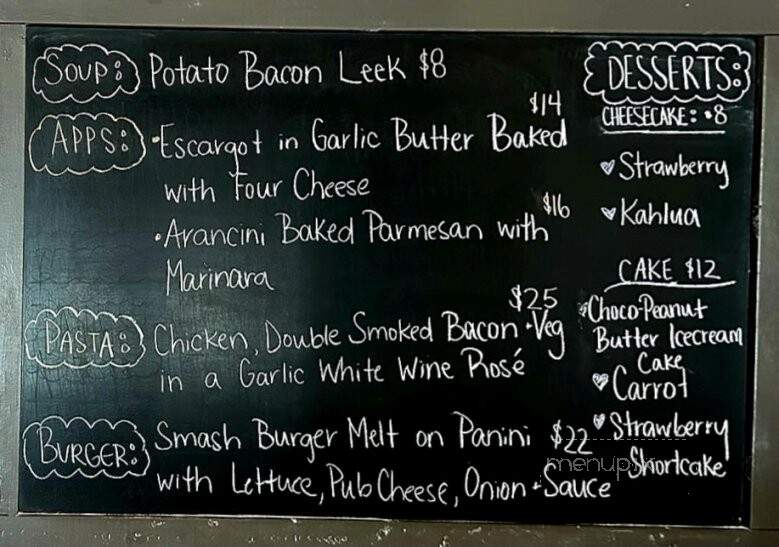 SOUP: Potato Bacon Leek $8
APPS: •Escargot in Garlic Butter Baked $14
with Four Cheese
•Arancini Baked Parmesan with $16
Marinara
PASTA: Chicken, Double Smoked Bacon + Veg $25
in a Garlic White Wine Rosé
BURGER: Smash Burger Melt on Panini $22
with Lettuce, Pub Cheese, Onion + Sauce
DESSERTS:
CHEESECAKE: $8
♥ Strawberry
♥ Kahlua
CAKE $12
♥ Choco-Peanut
Butter Icecream
Cake
♥ Carrot
♥ Strawberry
Shortcake